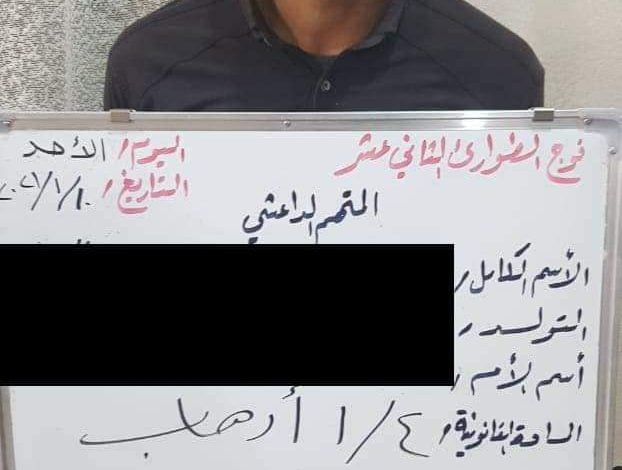 فوج الطوارئ الثاني عشر
اليوم/ الأحد
التاريخ/ ٢٠٢١/١/١٠
المتهم الداعشي
الأسم الكامل/
التولد/
أسم الأم/
المادة القانونية/ ٤/١ أرهاب